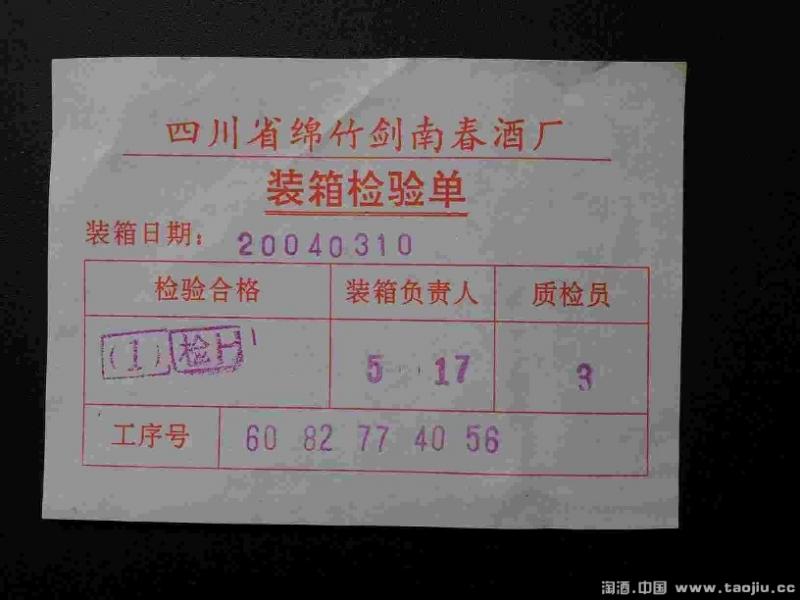 四川省绵竹剑南春酒厂
装箱检验单
装箱日期: 20040310
检验合格 装箱负责人 质检员
(1) 检 5 17 3
工序号 60 82 77 40 56
淘酒.中国 www.taojiu.cc